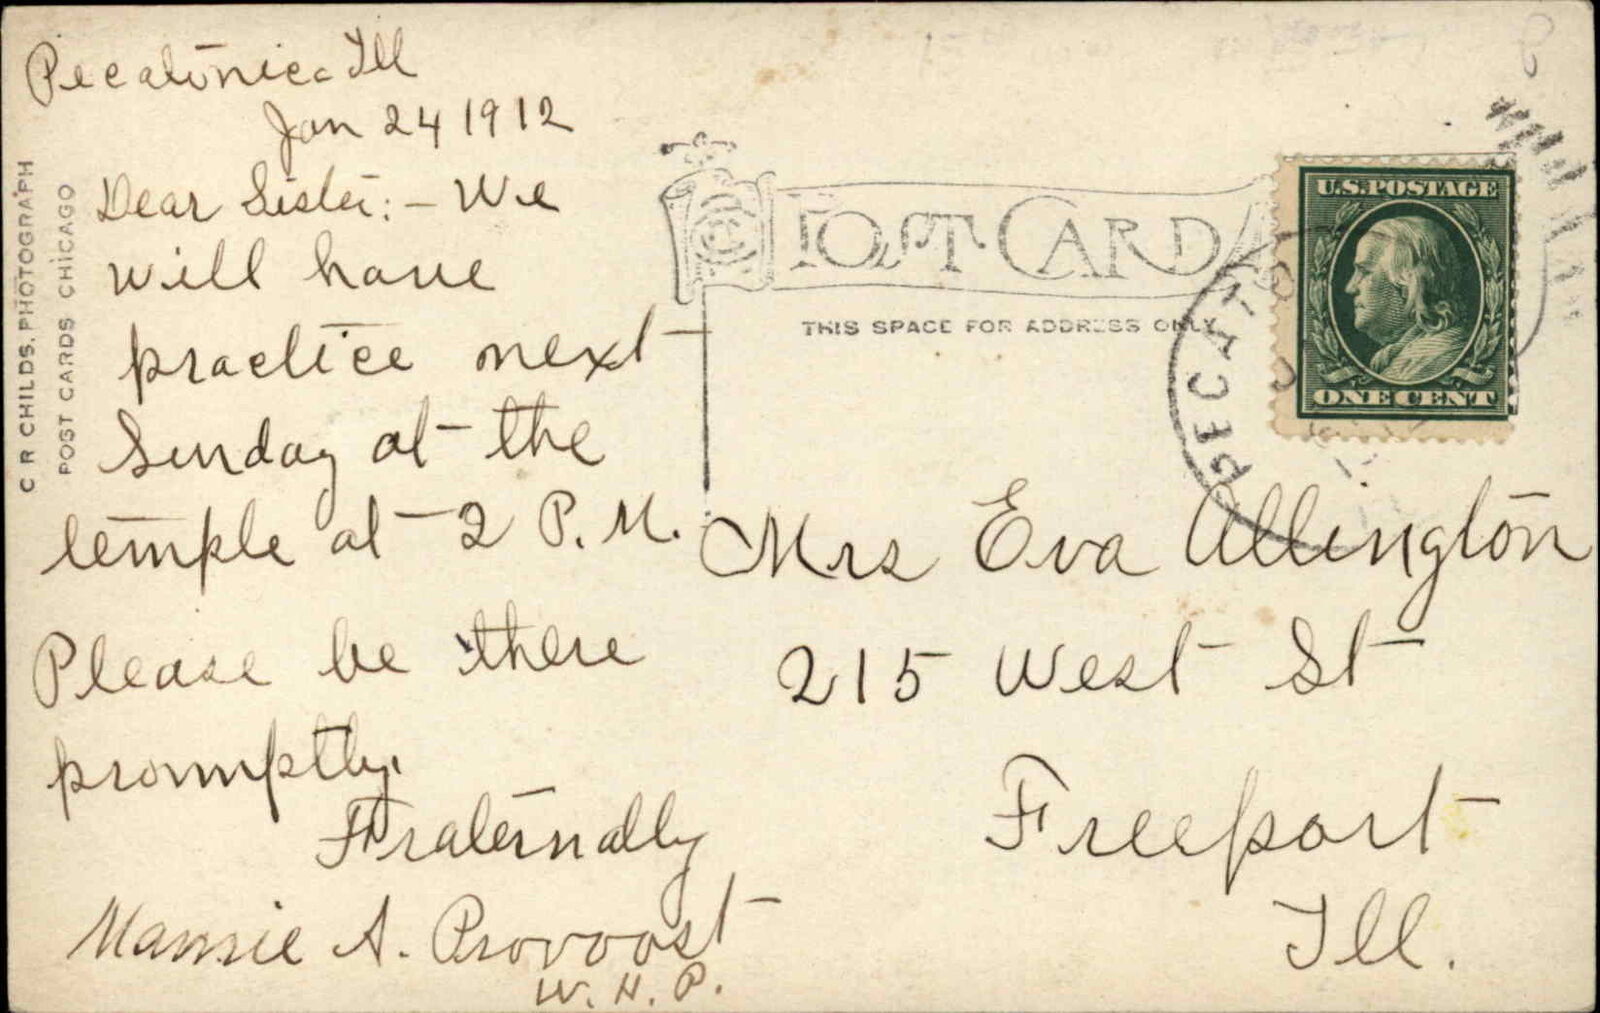 Pecatonica Ill
Jan 24 1912
Dear Sister:- We
will have
practice next
Sunday at the
temple at 2 P.M.
Please be there
promptly.
Fraternally
Mamie A. Provoost
W. H. P.
C R CHILDS, PHOTOGRAPH
POST CARDS CHICAGO
POST CARD
THIS SPACE FOR ADDRESS ONLY
U.S. POSTAGE
ONE CENT
PECAT
Mrs Eva Allington
215 West St
Freeport
Ill.